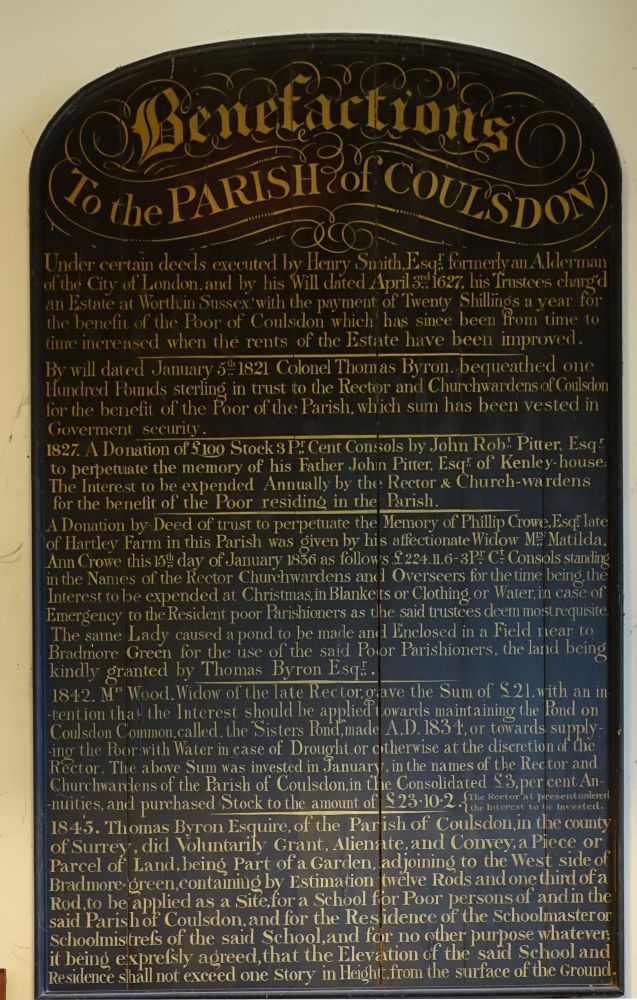 Benefactions
To the PARISH of COULSDON
Under certain deeds executed by Henry Smith, Esqr. formerly an Alderman
of the City of London, and by his Will dated April 3rd 1627, his Trustees charg'd
an Estate at Worth, in Sussex, with the payment of Twenty Shillings a year for
the benefit of the Poor of Coulsdon which has since been from time to
time increased when the rents of the Estate have been improved.
By will dated January 5th 1821 Colonel Thomas Byron. bequeathed one
Hundred Pounds sterling in trust to the Rector and Churchwardens of Coulsdon
for the benefit of the Poor of the Parish, which sum has been vested in
Goverment security.
1827. A Donation of £100 Stock 3 Pr. Cent Consols by John Robt. Pitter, Esqr.
to perpetuate the memory of his Father John Pitter, Esqr. of Kenley-house:
The Interest to be expended Annually by the Rector & Church-wardens
for the benefit of the Poor residing in the Parish.
A Donation by Deed of trust to perpetuate the Memory of Phillip Crowe, Esqr. late
of Hartley Farm in this Parish was given by his affectionate Widow Mrs. Matilda,
Ann Crowe this 15th day of January 1836 as follows £224.11.6-3Pr Ct. Consols standing
in the Names of the Rector Churchwardens and Overseers for the time being, the
Interest to be expended at Christmas, in Blankets or Clothing or Water, in case of
Emergency to the Resident poor Parishioners as the said trustees deem most requisite.
The same Lady caused a pond to be made and Enclosed in a Field near to
Bradmore Green for the use of the said Poor Parishioners, the land being
kindly granted by Thomas Byron Esqr.
1842. Mrs Wood, Widow of the late Rector, gave the Sum of £21, with an in-
-tention that the Interest should be applied towards maintaining the Pond on
Coulsdon Common, called, the "Sisters Pond", made A.D. 1834, or towards supply-
-ing the Poor with Water in case of Drought or otherwise at the discretion of the
Rector. The above Sum was invested in January, in the names of the Rector and
Churchwardens of the Parish of Coulsdon, in the Consolidated £3, per cent. An-
-nuities, and purchased Stock to the amount of £23-10-2. {The Rector at present ordered
the Interest to be Invested.
1845. Thomas Byron Esquire, of the Parish of Coulsdon, in the county
of Surrey, did Voluntarily Grant, Alienate, and Convey, a Piece or
Parcel of Land, being Part of a Garden, adjoining to the West side of
Bradmore-green, containing by Estimation twelve Rods and one third of a
Rod, to be applied as a Site, for a School for Poor persons of and in the
said Parish of Coulsdon, and for the Residence of the Schoolmaster or
Schoolmistreſs of the said School, and for no other purpose whatever;
it being expreſsly agreed, that the Elevation of the said School and
Residence shall not exceed one Story in Height, from the surface of the Ground.